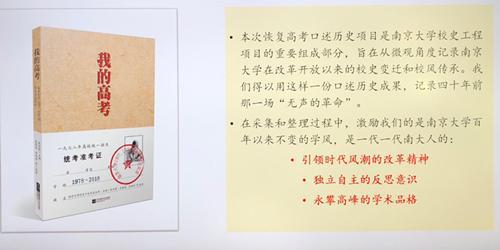 我的高考
一九七八年高校统一招生
统考准考证
1978-2018
• 本次恢复高考口述历史项目是南京大学校史工程
项目的重要组成部分，旨在从微观角度记录南京
大学在改革开放以来的校史变迁和校风传承。我
们得以用这样一份口述历史成果，记录四十年前
那一场“无声的革命”。
• 在采集和整理过程中，激励我们的是南京大学百
年以来不变的学风，是一代一代南大人的：
• 引领时代风潮的改革精神
• 独立自主的反思意识
• 永攀高峰的学术品格